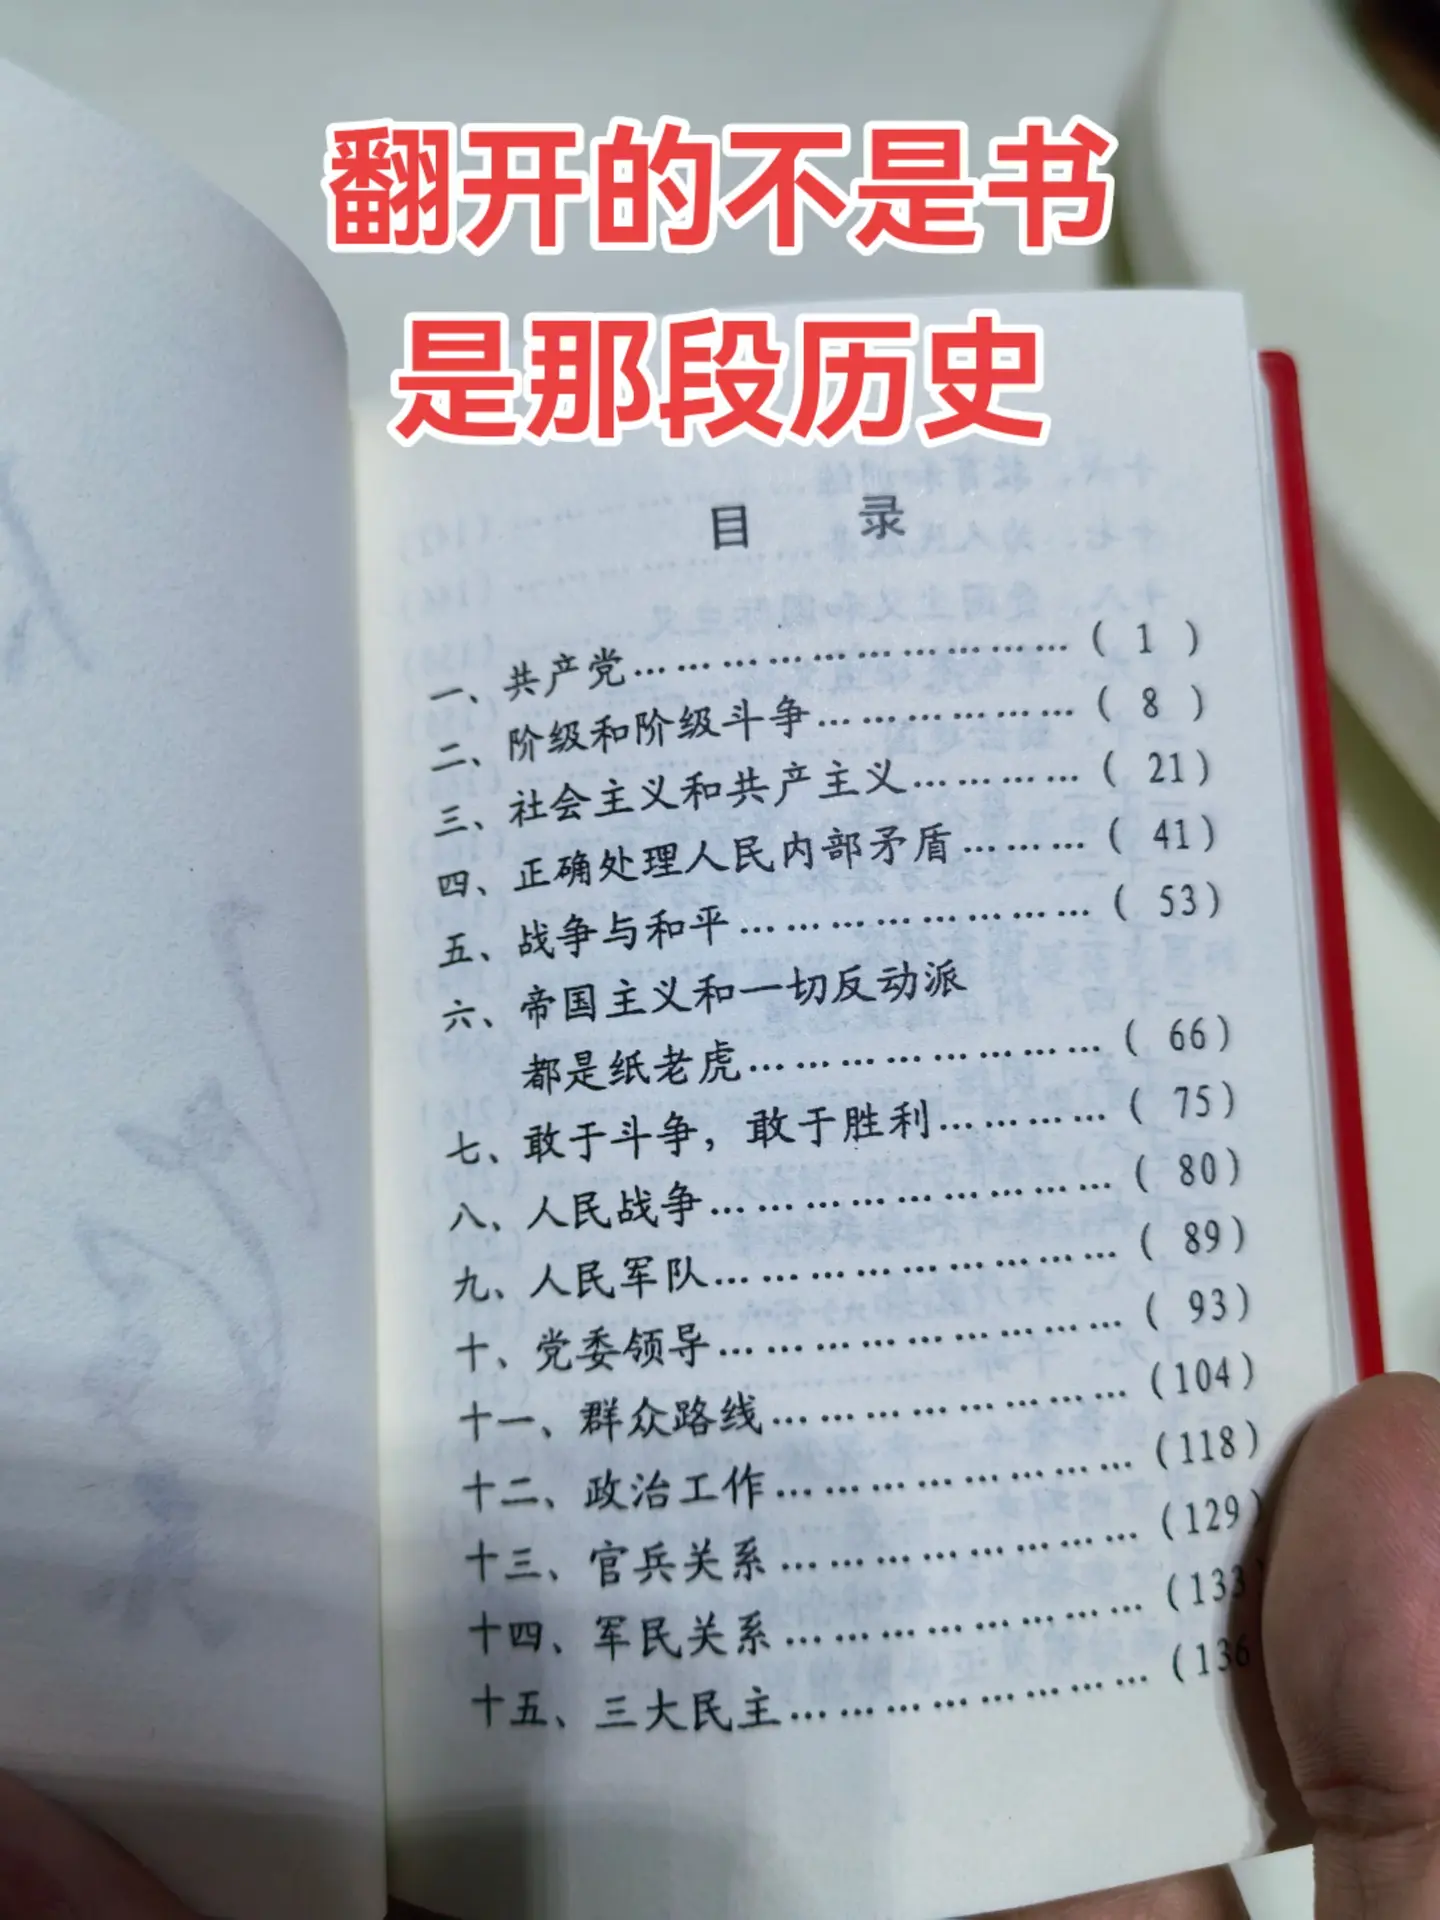 翻开的不是书
是那段历史
目 录
一、共产党…………………………( 1 )
二、阶级和阶级斗争………………( 8 )
三、社会主义和共产主义…………( 21)
四、正确处理人民内部矛盾………( 41)
五、战争与和平……………………( 53)
六、帝国主义和一切反动派
都是纸老虎……………………( 66)
七、敢于斗争，敢于胜利…………( 75)
八、人民战争………………………( 80)
九、人民军队………………………( 89)
十、党委领导………………………( 93)
十一、群众路线……………………(104)
十二、政治工作……………………(118)
十三、官兵关系……………………(129)
十四、军民关系……………………(133)
十五、三大民主……………………(136